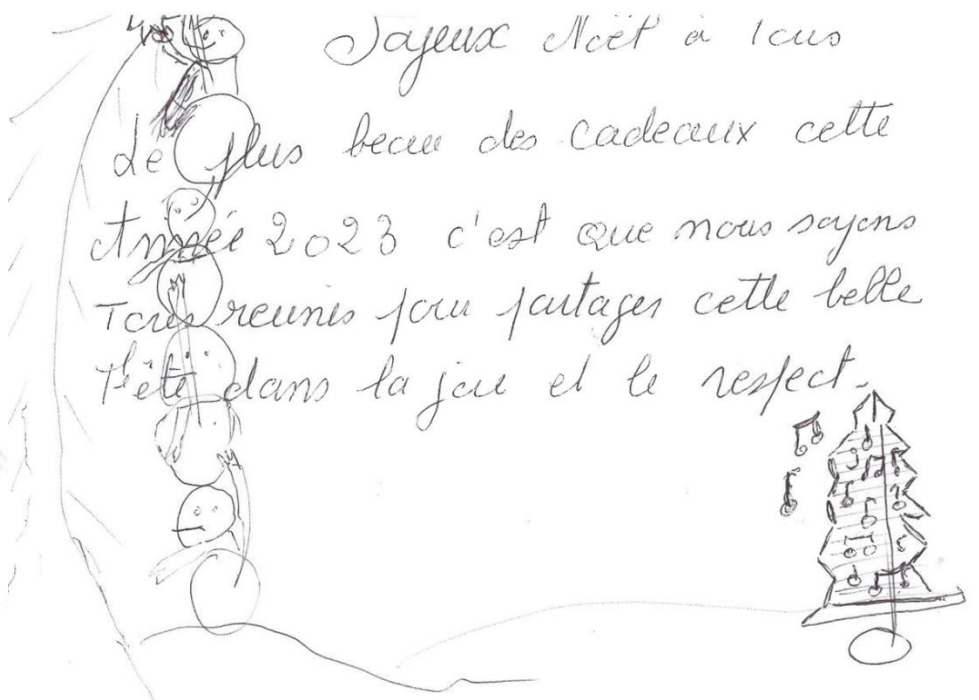 Joyeux Noël à Tous
Le plus beau des cadeaux cette
Année 2023 c'est que nous soyons
Tous reunis pour partager cette belle
Fête dans la joie et le respect.